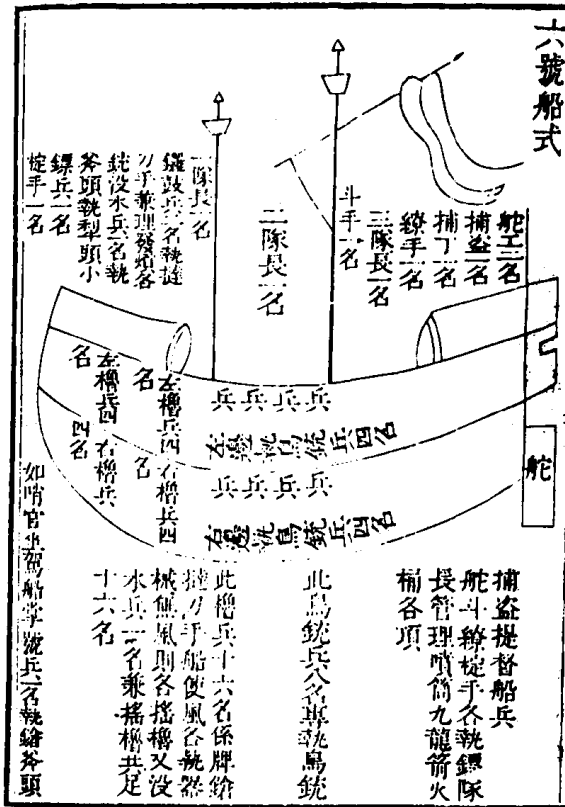 六號船式
舵工二名
捕盜一名
捕丁一名
繚手一名
三隊長一名
斗手一名
二隊長一名
一隊長一名
鑼鼓兵二名執㨯
刀手兼理發熕各
銃没水兵一名執
斧頭執犁頭小
鏢兵一名
椗手一名
舵
兵兵兵兵
左邊執鳥銃兵四名
兵兵兵兵
右邊執鳥銃兵四名
左櫓兵四名
右櫓兵四名
左櫓兵四名
右櫓兵四名
捕盜提督船兵
舵斗繚椗手各執鏢隊
長管理噴筒九龍箭火
桶各項
此鳥銃兵八名專執鳥銃
此櫓兵十六名係牌鎗
㨯刀手船使風各執器
械無風則各搖櫓又没
水兵一名兼搖櫓共足
十六名
如哨官坐駕船掌號兵一名執鎗斧頭